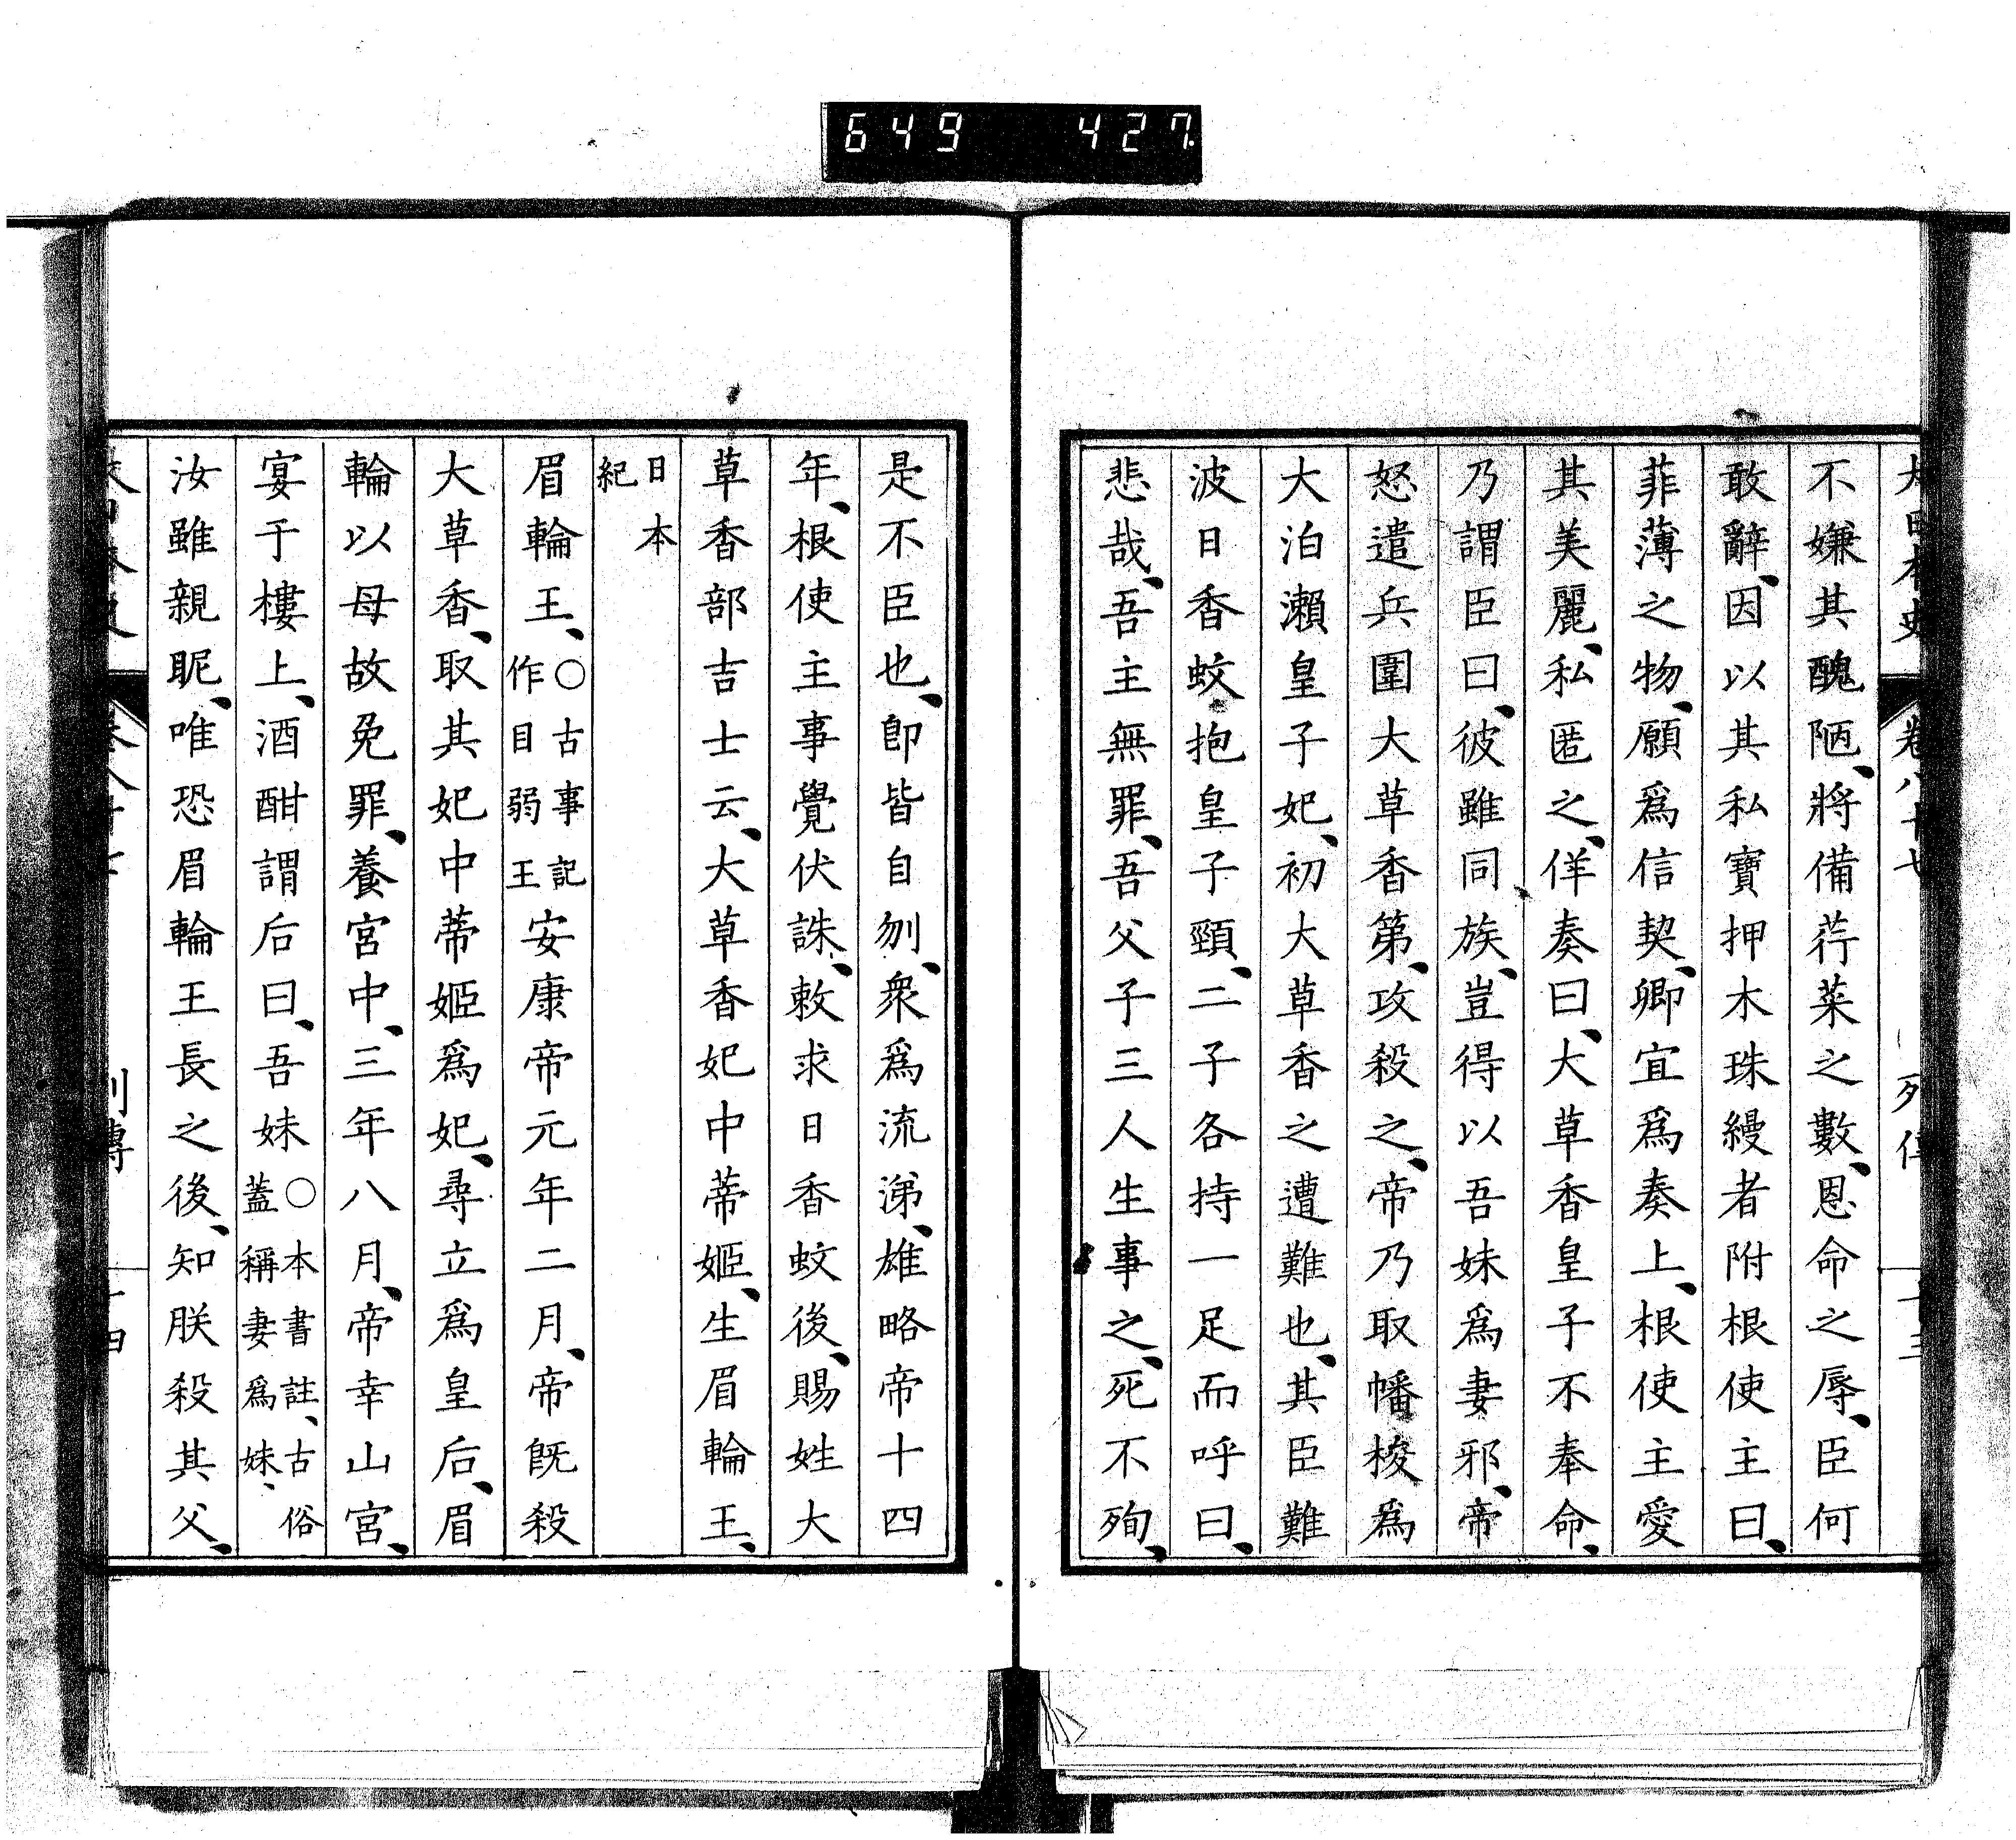 649 427
大日本史 卷八十七 列傳
不嫌其醜陋、將備荇菜之數、恩命之辱、臣何
敢辭、因以其私寶押木珠縵者附根使主曰、
菲薄之物、願爲信契、卿宜爲奏上、根使主愛
其美麗、私匿之、佯奏曰、大草香皇子不奉命、
乃謂臣曰、彼雖同族、豈得以吾妹爲妻邪、帝
怒遣兵圍大草香第、攻殺之、帝乃取幡梭爲
大泊瀨皇子妃、初大草香之遭難也、其臣難
波日香蚊抱皇子頸、二子各持一足而呼曰、
悲哉、吾主無罪、吾父子三人生事之、死不殉、
是不臣也、卽皆自刎、衆爲流涕、雄略帝十四
年、根使主事覺伏誅、敕求日香蚊後、賜姓大
草香部吉士云、大草香妃中蒂姬、生眉輪王、
日本
紀
眉輪王、○古事記作目弱王安康帝元年二月、帝旣殺
大草香、取其妃中蒂姬爲妃、尋立爲皇后、眉
輪以母故免罪、養宮中、三年八月、帝幸山宮、
宴于樓上、酒酣謂后曰、吾妹○本書註、古俗蓋稱妻爲妹、
汝雖親昵、唯恐眉輪王長之後、知朕殺其父、
列傳